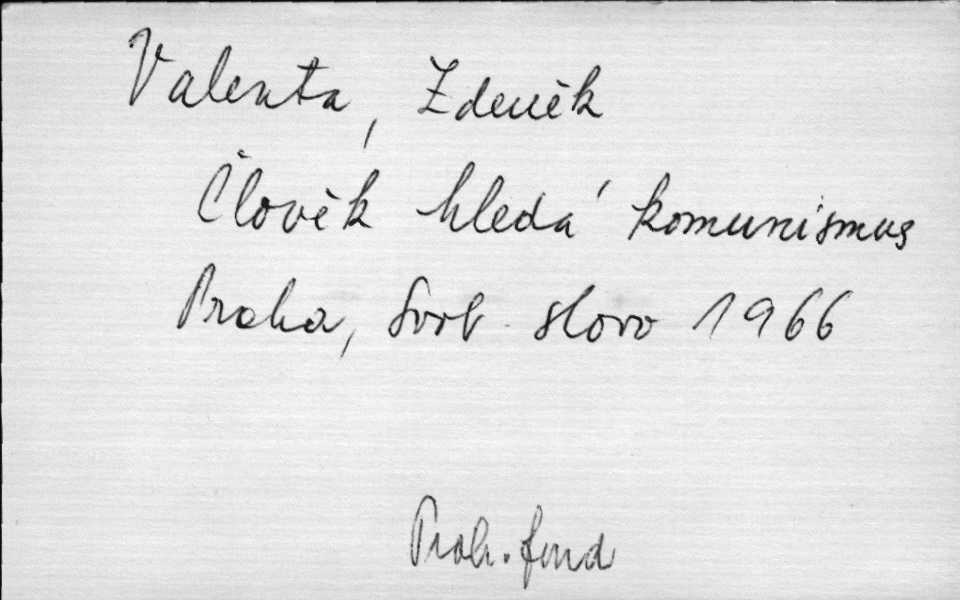 Valenta, Zdeněk
Člověk hledá komunismus
Praha, Svob. slovo 1966
Proh. fond